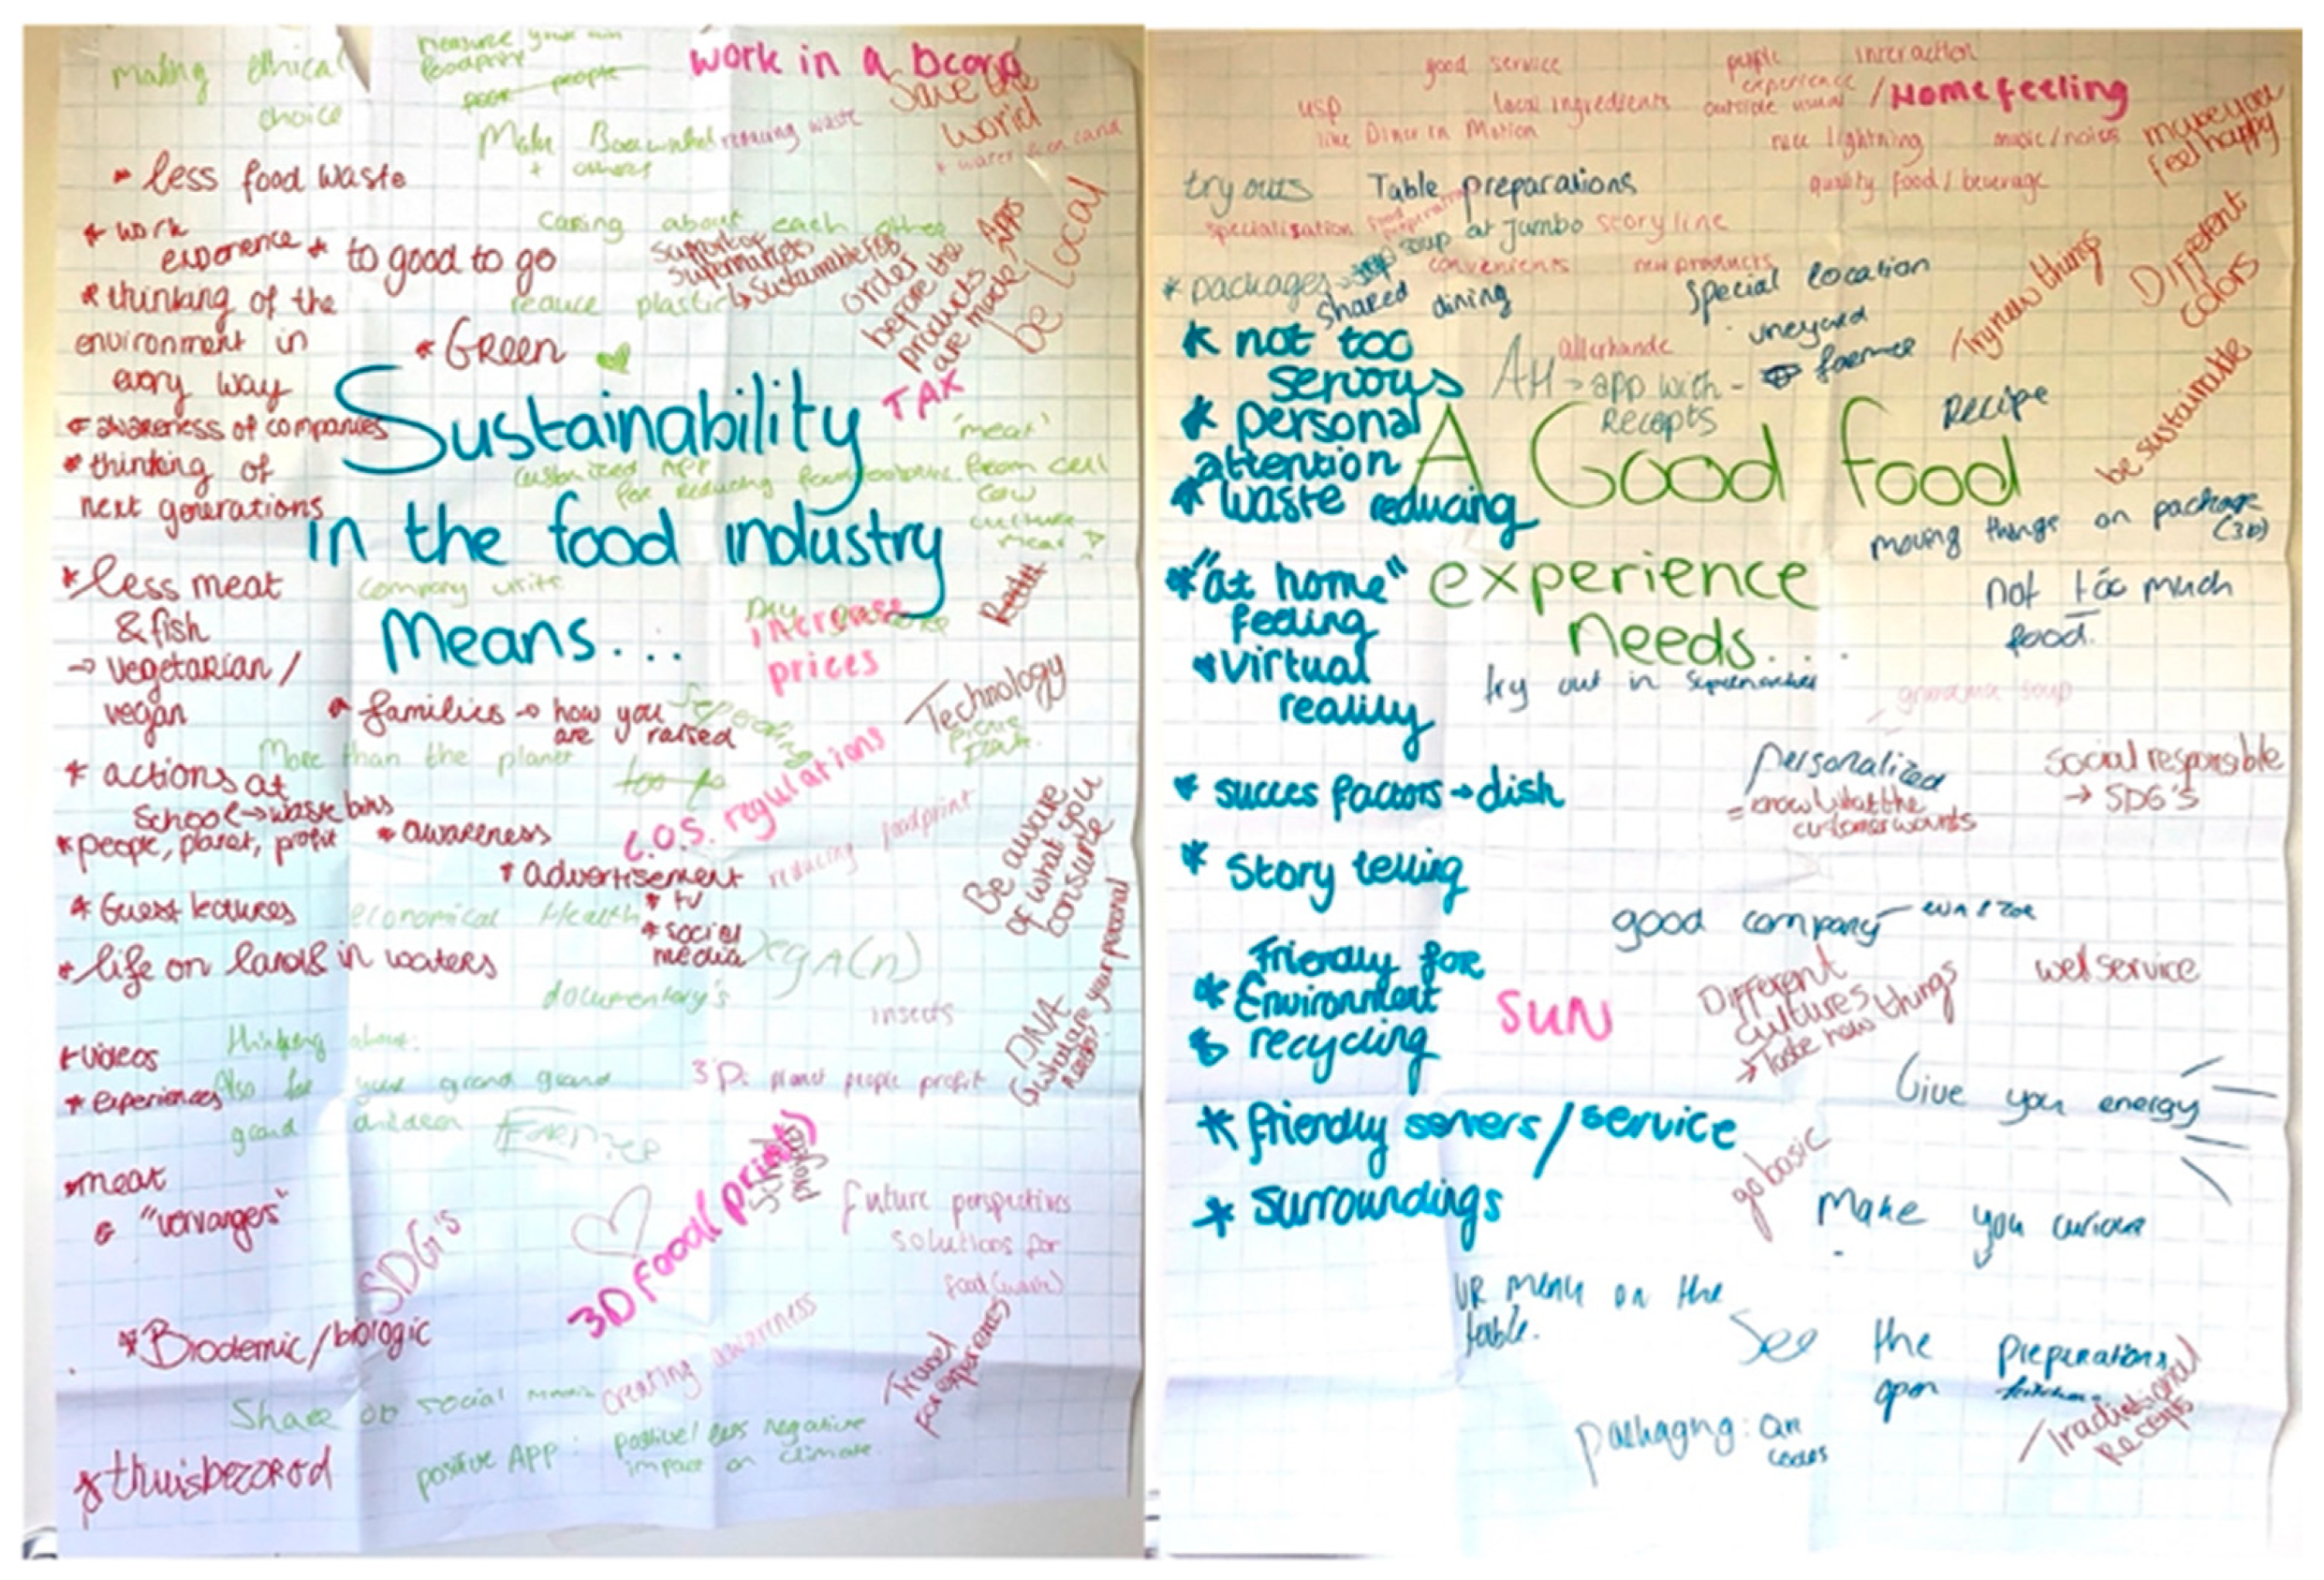 making ethical
choice
measure your own
foodprint
people
work in a bcorp
Save the
world
Make
+ others
reducing waste
* less food waste
* work
experience
* to good to go
caring about each other
support of
supermarkets
↳ sustainable
order
before the
products
are made
Apps
be local
* thinking of the
environment in
every way
reduce plastic
* GREEN
TAX
* awareness of companies
* thinking of
next generations
Sustainability
in the food industry
Means...
customized APP
for reducing
"meat"
from cell
cow
culture
meat
* less meat
& fish
→ vegetarian /
vegan
company
increase
prices
* families → how you
are raised
Technology
More than the planet
* actions at
school → waste bins
* people, planet, profit
* awareness
regulations
reducing foodprint
* advertisement
* tv
* social
media
Be aware
of what you
consume
* Guest lectures
economical Health
* life on land & in waters
vegA(n)
documentary's
insects
DNA
what are your personal
needs?
* videos
* experiences
thinking about:
Also for your grand grand
grand children
FARMER
3P: planet people profit
* meat
& "vervangers"
SDG's
3D Food(print)
future perspectives
solutions for
food (waste)
* Biodemic/biologic
creating awareness
Travel
for experiences
Share on social media
positive APP: positive/less negative
impact on climate
* thuisbezorgd
good service
people interaction
experience
outside usual
/ Home feeling
usp
local ingredients
like Diner in Motion
nice lightning
music/noises
make you
feel happy
try outs
Table preparations
quality food/beverage
specialisation
food
preparation
soup at Jumbo
storyline
convenients
new products
* packages
shared dining
Special location
vineyard
farmer
/Try new things
Different
colors
* not too
serious
* personal
attention
* waste reducing
AH → app with -
allerhande
Recepts
Recipe
be sustainable
A Good food
experience
needs...
moving things on package
(3D)
not too much
food.
* "at home"
feeling
* virtual
reality
try out in supermarket
grandma soup
personalized
= know what the
customer wants
social responsible
→ SDG'S
* succes factors → dish
* Story telling
good company
Friendly for
* Environment
& recycling
SUN
Different
cultures
→ Taste new things
wel service
Give you energy
* friendly servers/service
go basic
* surroundings
Make you curious
VR menu on the
table.
See the preparations
open
/Traditional
Recepts
packaging: QR
codes